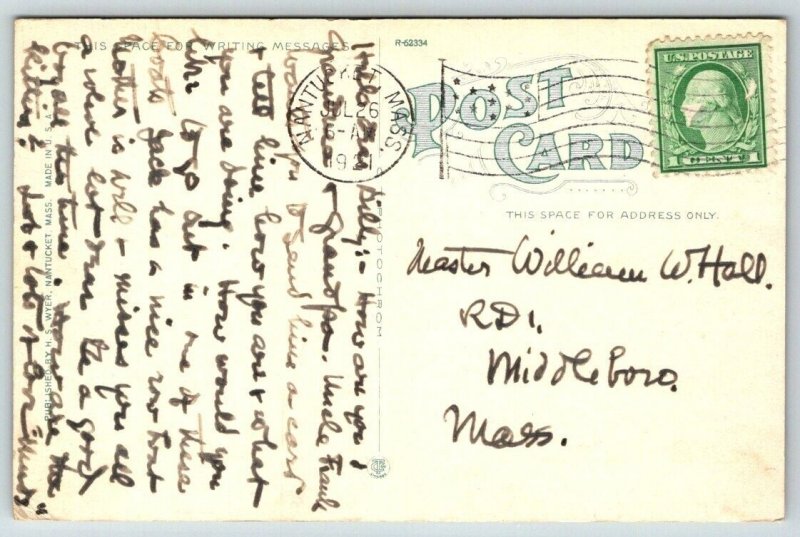 THIS SPACE FOR WRITING MESSAGES
R-62334
POST CARD
NANTUCKET MASS.
JUL 26
6-AM
1921
U.S. POSTAGE
1 CENT 1
THIS SPACE FOR ADDRESS ONLY.
Master William W. Hall.
RD1.
Middleboro.
Mass.
Hello Billy:- How are you?
grandma & Grandpa. Uncle Frank
you to send him a card
& tell him how you are & what
you are doing. How would you
like to go out in one of these
boats Jack has a nice row boat
Mother is well & misses you all
a whole lot dear. Be a good
boy all this time. How are the
kitties? Lots & lots of love
PHOTOCHROM
PUBLISHED BY H. S. WYER, NANTUCKET, MASS. MADE IN U.S.A.